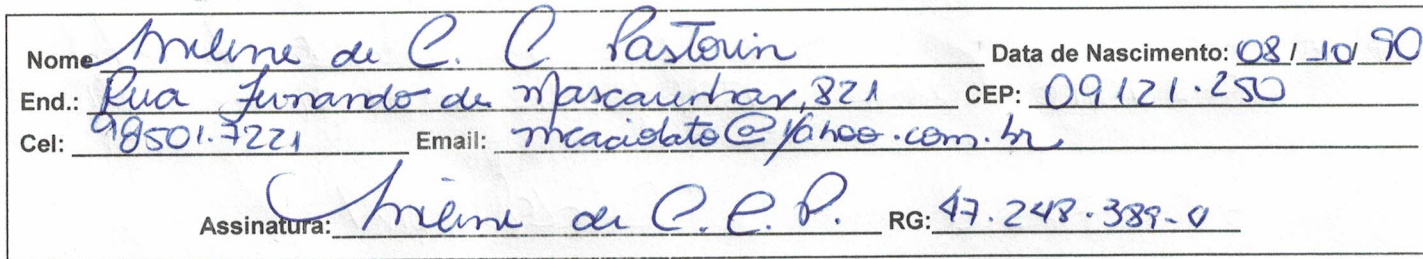 Nome Milene de C. C. Pastorin Data de Nascimento: 08/10/90
End.: Rua Fernando de Mascarenhas, 821 CEP: 09121.250
Cel: 98501.7221 Email: mcaciolato@yahoo.com.br
Assinatura: Milene de C. C. P. RG: 47.248.389-0